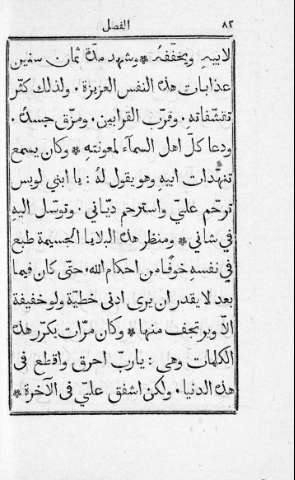 ٨٢ الفصل
لابيهِ ويخفّفهُ * وشهد مدّة ثمان سنين
عذابات هذه النفس العزيزة. ولذلك كثّر
تقشفاتهِ. وقرّب القرابين. ومزّق جسدهُ.
ودعا كلّ اهل السمآء لمعونتهِ * وكان يسمع
تنهّدات ابيهِ وهو يقول لهُ: يا ابني لويس
ترحّم عليّ واسترحم ديّاني. وتوسّل اليهِ
في شاني * ومنظر هذه البلايا الجسيمة طبع
في نفسهِ خوفًا من احكام الله. حتى كان فيما
بعد لا يقدر ان يرى ادنى خطيّة ولو خفيفة
الاّ ويرتجف منها * وكان مرّات يكرّر هذه
الكلمات وهي: يا ربّ احرق واقطع في
هذه الدنيا. ولكن اشفق عليّ في الآخرة *